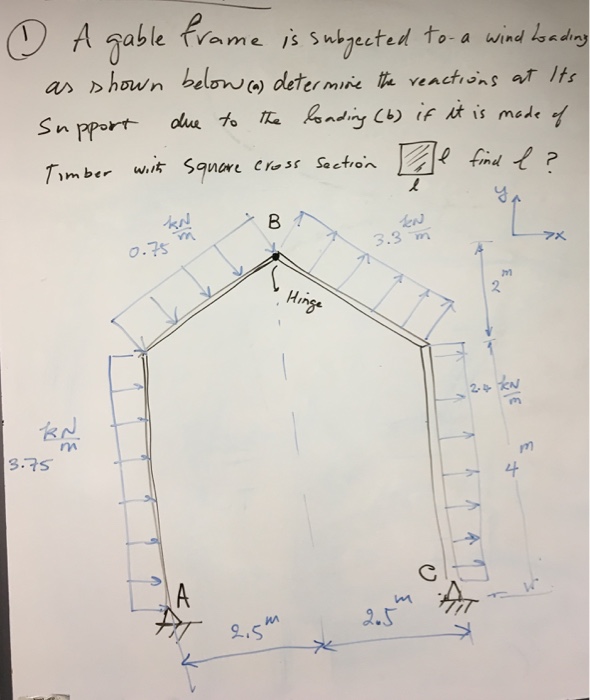 ① A gable frame is subjected to a wind loading
as shown below (a) determine the reactions at Its
Support due to the loading (b) if it is made of
Timber with square cross section l find l ?
l
y
x
kN/m
0.75
B
3.3 kN/m
2 m
Hinge
kN/m
3.75
2.4 kN/m
4 m
A
C
2.5 m
2.5 m